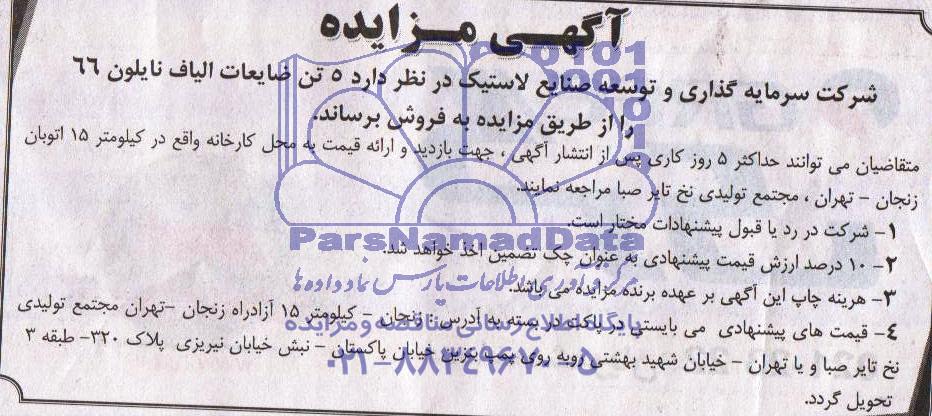 آگهی مزایده
شرکت سرمایه گذاری و توسعه صنایع لاستیک در نظر دارد ۵ تن ضایعات الیاف نایلون ۶۶
را از طریق مزایده به فروش برساند.
متقاضیان می توانند حداکثر ۵ روز کاری پس از انتشار آگهی ، جهت بازدید و ارائه قیمت به محل کارخانه واقع در کیلومتر ۱۵ اتوبان
زنجان – تهران ، مجتمع تولیدی نخ تایر صبا مراجعه نمایند.
۱- شرکت در رد یا قبول پیشنهادات مختار است.
۲- ۱۰ درصد ارزش قیمت پیشنهادی به عنوان چک تضمین اخذ خواهد شد.
۳- هزینه چاپ این آگهی بر عهده برنده مزایده می باشد.
۴- قیمت های پیشنهادی می بایستی در پاکت در بسته به آدرس : زنجان – کیلومتر ۱۵ آزادراه زنجان –تهران مجتمع تولیدی
نخ تایر صبا و یا تهران – خیابان شهید بهشتی روبه روی پمپ بنزین خیابان پاکستان – نبش خیابان نیریزی پلاک ۳۲۰- طبقه ۳
تحویل گردد.
ParsNamadData
مرکز فرآوری اطلاعات پارس نماد داده ها
پایگاه اطلاع رسانی مناقصه و مزایده
۰۲۱-۸۸۳۴۹۶۷۰-۵